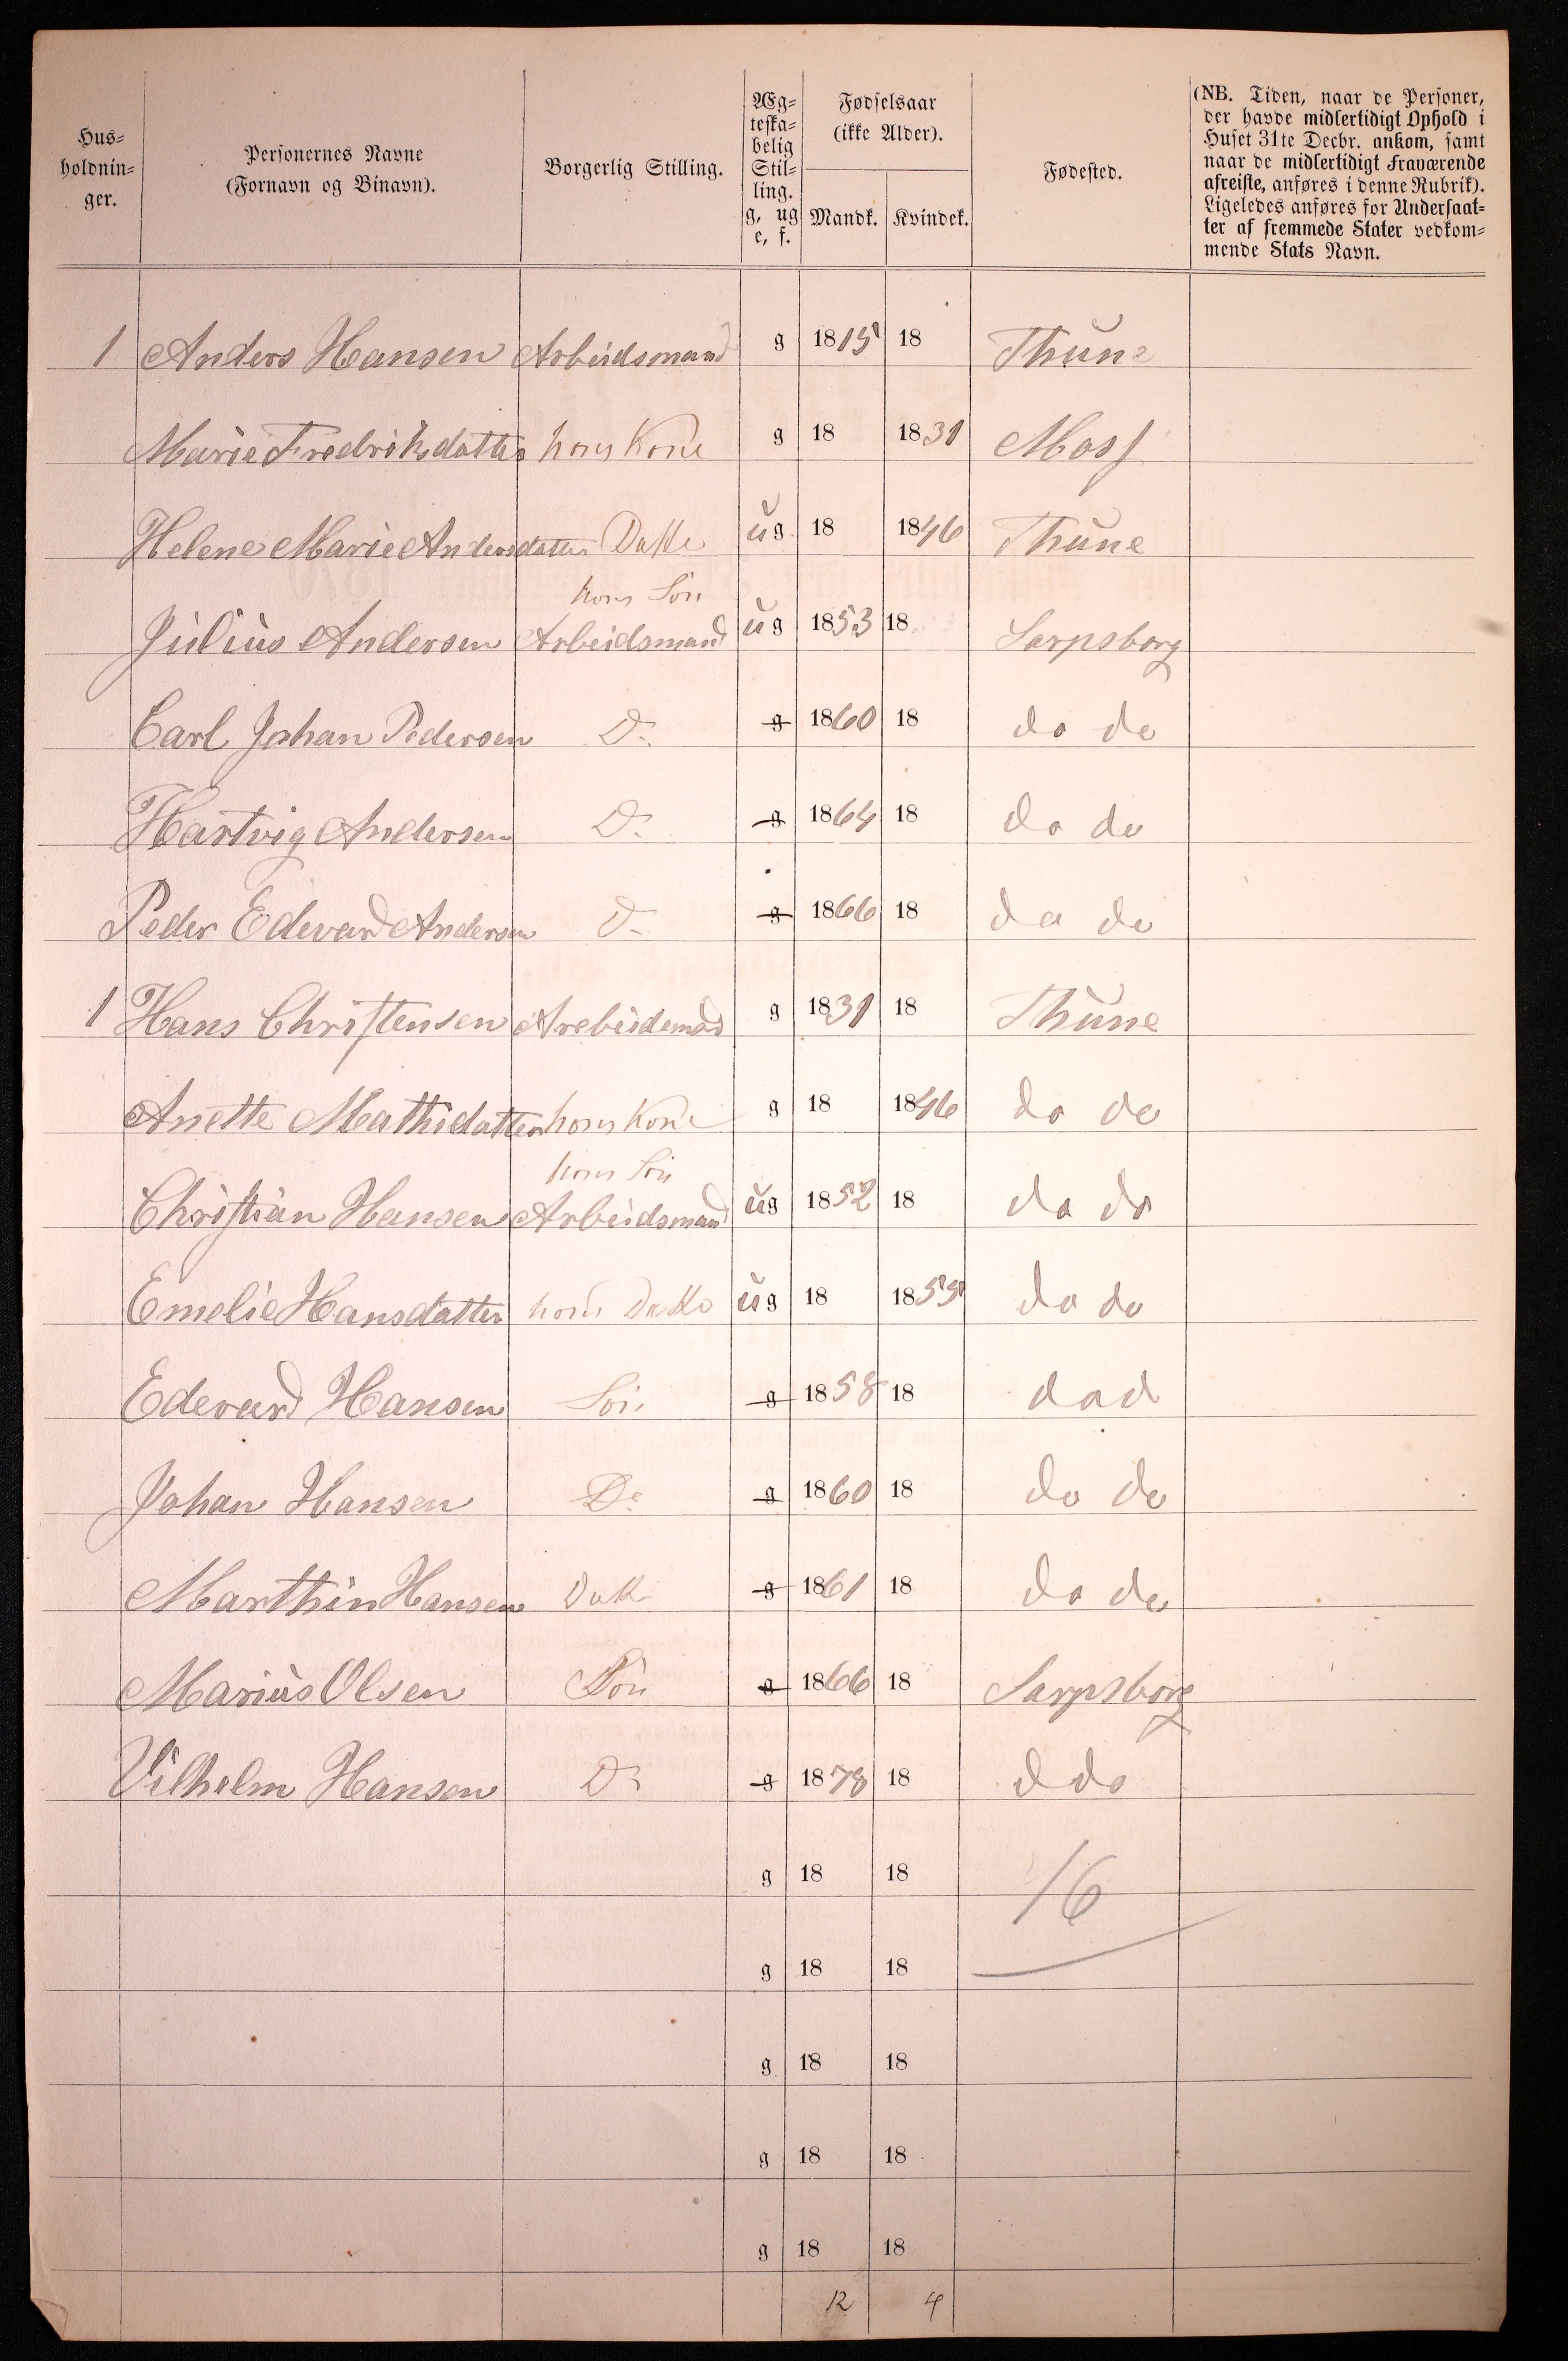 Hus-
holdnin-
ger.
Personernes Navne
(Fornavn og Binavn).
Borgerlig Stilling.
Æg-
teska-
belig
Stil-
ling.
g, ug
e, f.
Fødselsaar
(ikke Alder).
Mandk. Kvindek.
Fødested.
(NB. Tiden, naar de Personer,
der havde midlertidigt Ophold i
Huset 31te Decbr. ankom, samt
naar de midlertidigt Fraværende
afreiste, anføres i denne Rubrik).
Ligeledes anføres for Undersaat-
ter af fremmede Stater vedkom-
mende Stats Navn.
1 Anders Hansen Arbeidsmand g 1815 18 Thune
Marie Fredriksdatter hans Kone g 18 1831 Moss
Helene Marie Andersdatter Datte ug 18 1846 Thune
hans Sön
Julius Andersen Arbeidsmand ug 1853 18 Sarpsborg
Carl Johan Pedersen D. g 1860 18 do do
Hartvig Andersen D. g 1864 18 do do
Peder Edevard Andersen D. g 1866 18 do do
1 Hans Christensen Arebeidsmad g 1831 18 Thune
Anette Mathidatter hans Kone g 18 1846 do do
hans Sön
Christian Hansen Arbeidsmand ug 1852 18 do do
Emelie Hansdatter hans Datte ug 18 1855 do do
Edevard Hansen Sön g 1858 18 do d
Johan Hansen Do g 1860 18 do do
Marthin Hansen Datt g 1861 18 do do
Marius Olsen Sön g 1866 18 Sarpsborg
Vilhelm Hansen Do g 1870 18 d do
g 18 18 16
g 18 18
g 18 18
g 18 18
g 18 18
12 4